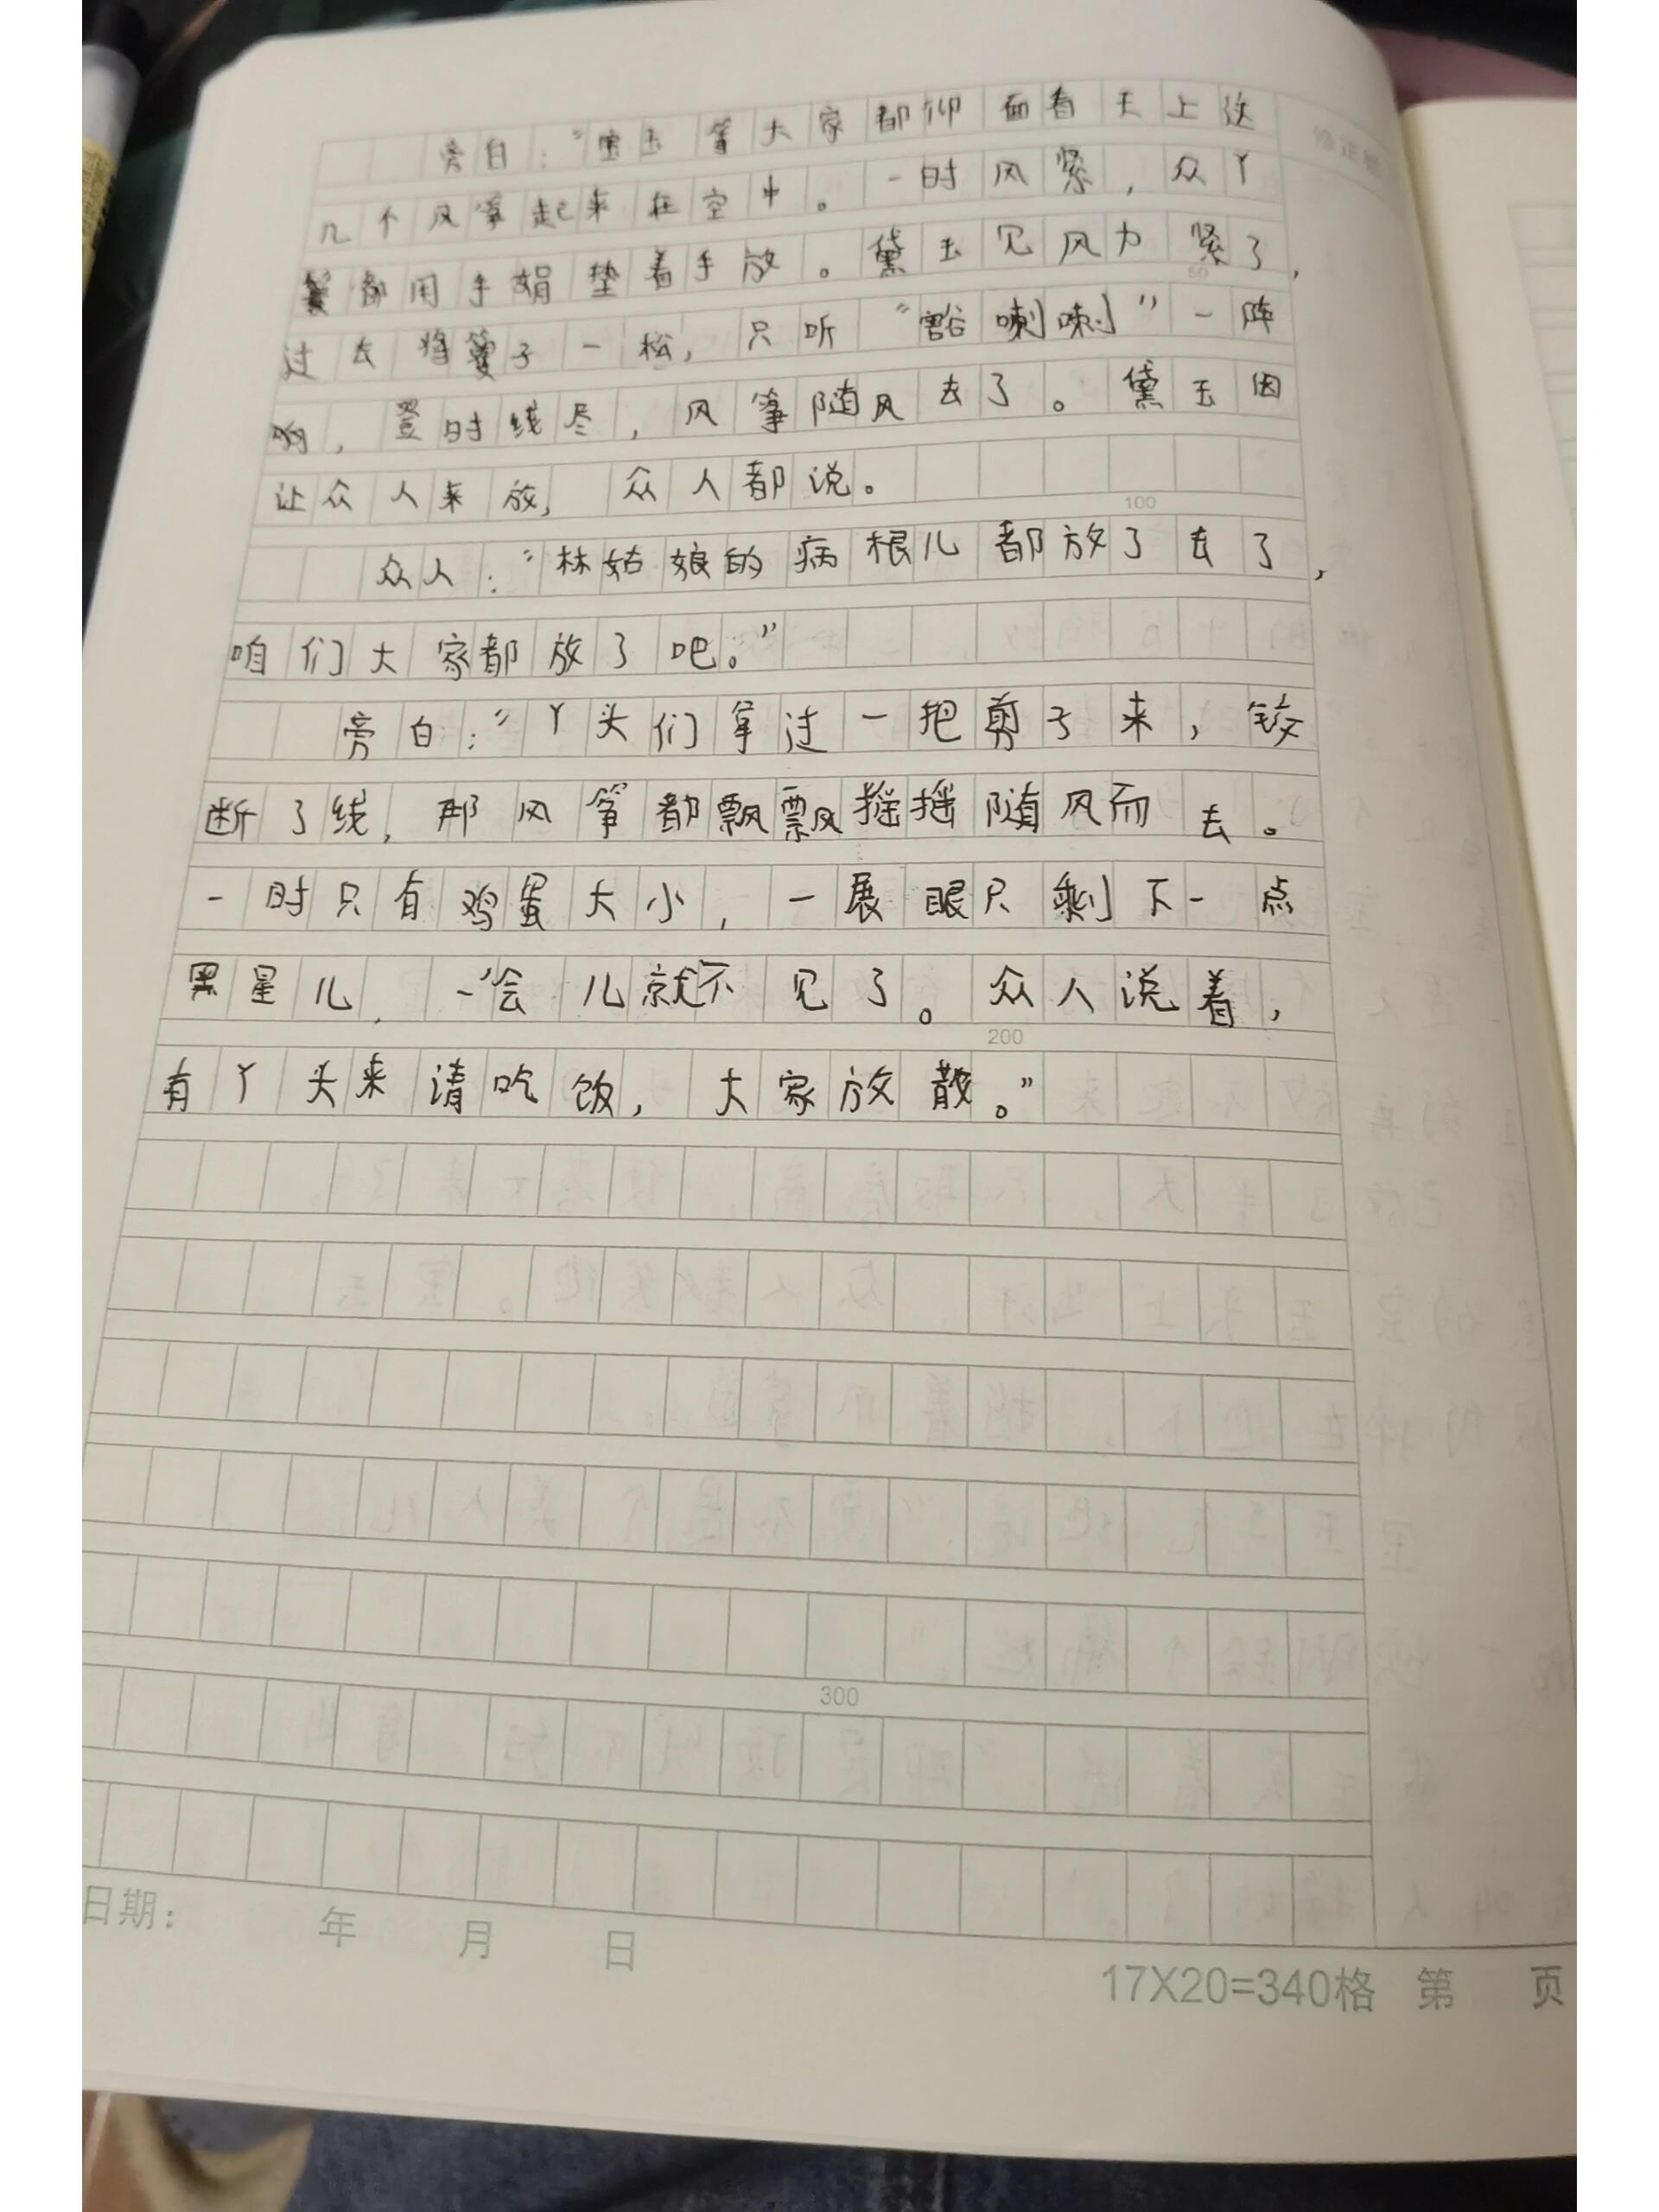 旁白：“宝玉等大家都仰面看天上这
几个风筝起来在空中。一时风紧，众丫
鬟都用手绢垫着手放。黛玉见风力紧了，
过去将籰子一松，只听“豁喇喇”一阵
响，登时线尽，风筝随风去了。黛玉因
让众人来放，众人都说。
100
众人：“林姑娘的病根儿都放了去了，
咱们大家都放了吧。”
旁白：“丫头们拿过一把剪子来，铰
断了线，那风筝都飘飘摇摇随风而去。
一时只有鸡蛋大小，一展眼只剩下一点
黑星儿，一会儿就不见了。众人说着，
200
有丫头来请吃饭，大家放散。”
300
日期： 年 月 日
17X20=340格 第 页